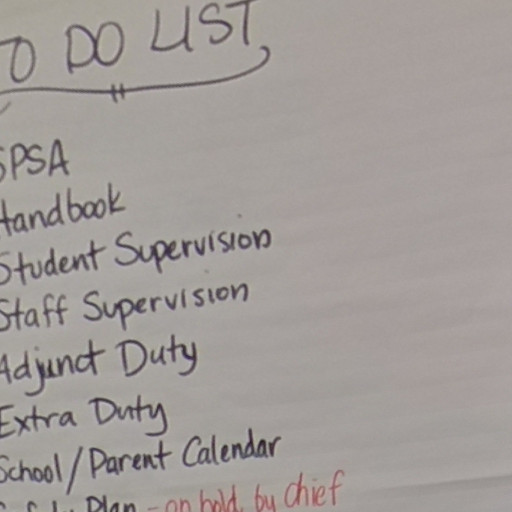 TO DO LIST
SPSA
Handbook
Student Supervision
Staff Supervision
Adjunct Duty
Extra Duty
School/Parent Calendar
Plan - on hold by chief